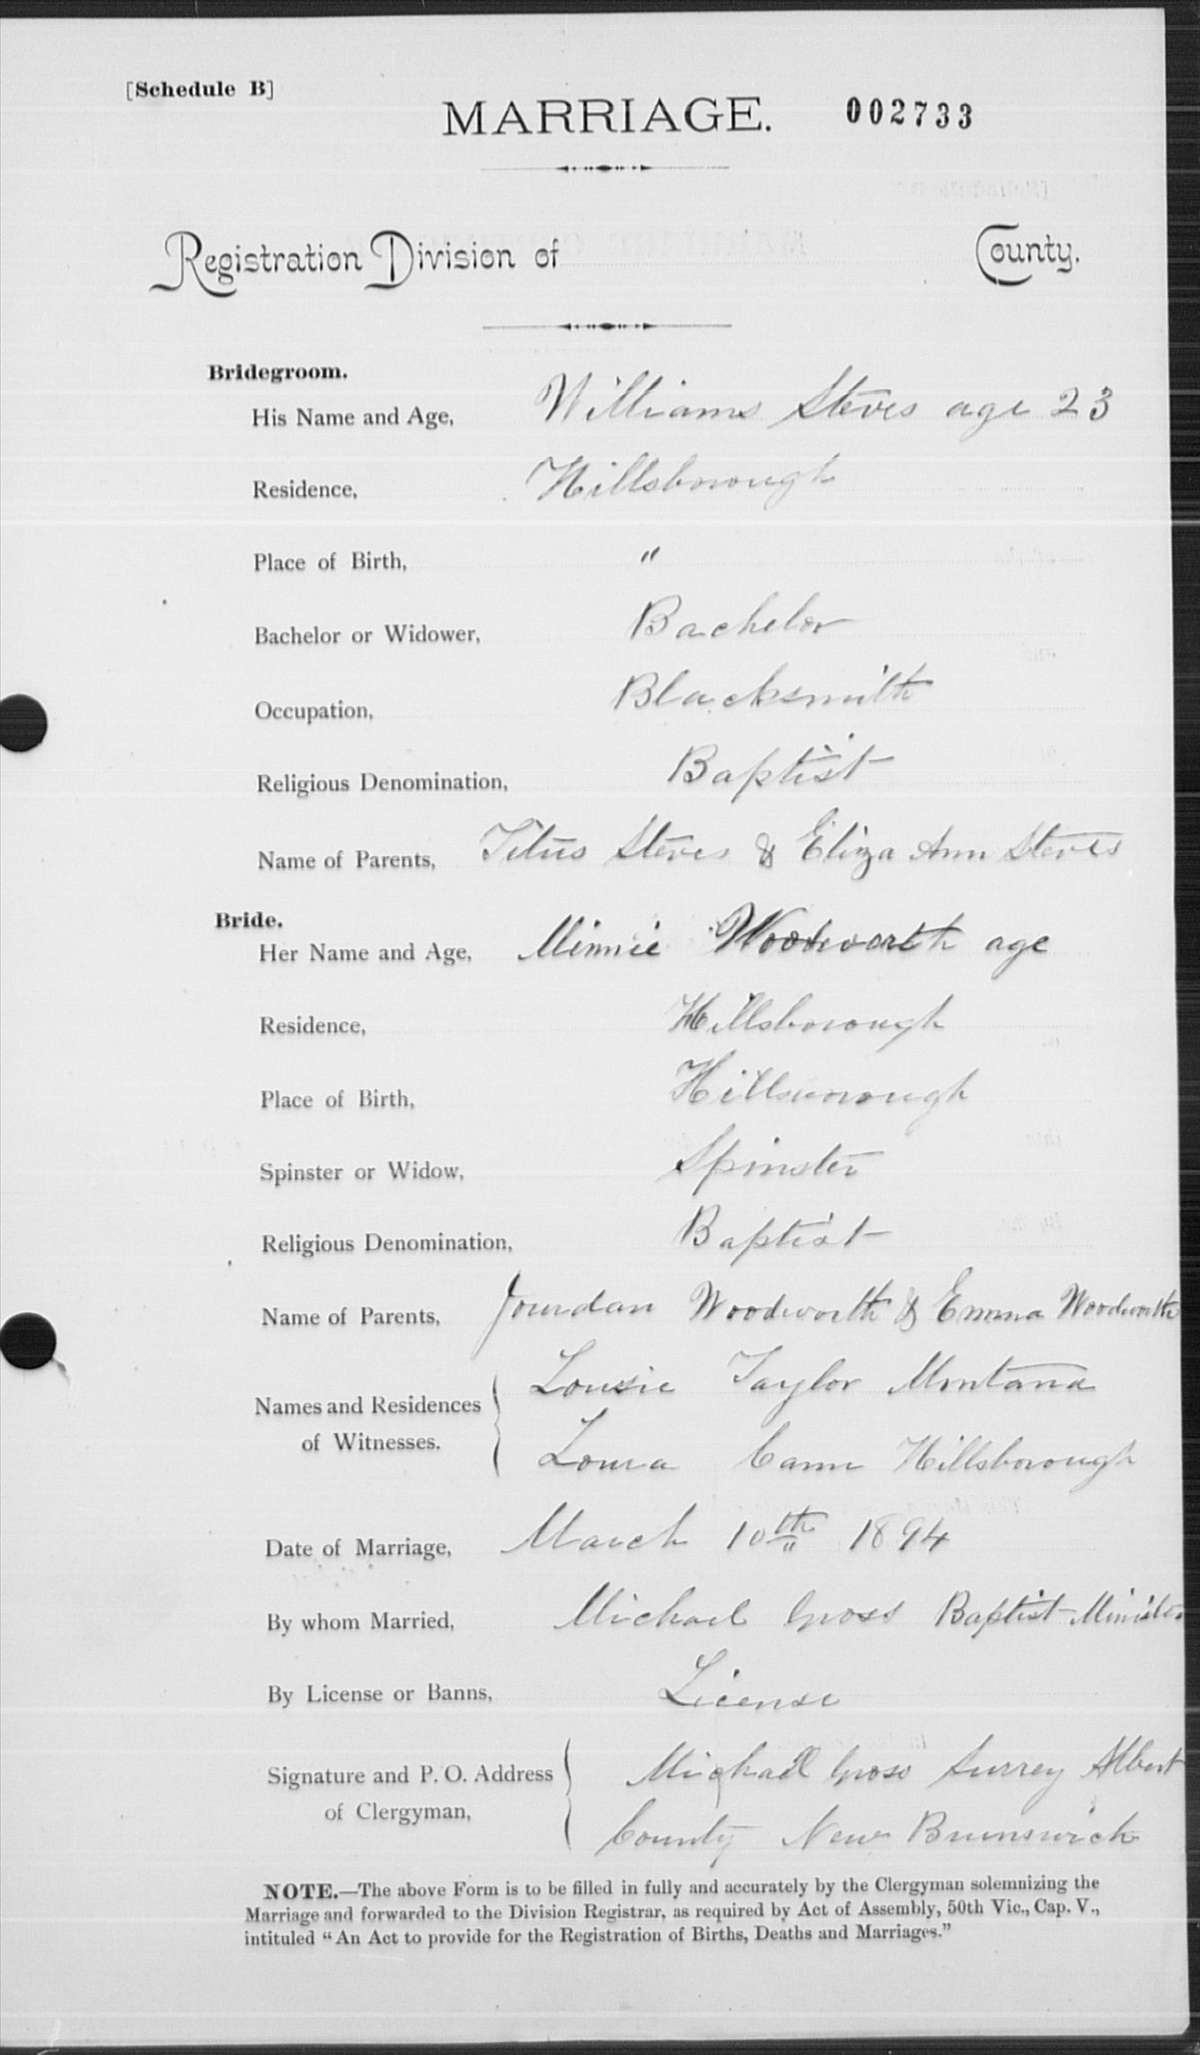 [Schedule B]
MARRIAGE. 002733
Registration Division of County.
Bridegroom.
His Name and Age, Williams Steves age 23
Residence, Hillsborough
Place of Birth, "
Bachelor or Widower, Bachelor
Occupation, Blacksmith
Religious Denomination, Baptist
Name of Parents, Titus Steves & Eliza Ann Steves
Bride.
Her Name and Age, Minnie Woodworth age
Residence, Hillsborough
Place of Birth, Hillsborough
Spinster or Widow, Spinster
Religious Denomination, Baptist
Name of Parents, Jourdan Woodworth & Emma Woodworth
Names and Residences Lousie Taylor Montana
of Witnesses. Loura Cann Hillsborough
Date of Marriage, March 10th 1894
By whom Married, Michael Gross Baptist Minister
By License or Banns, License
Signature and P. O. Address Michael Gross Surrey Albert
of Clergyman, County New Brunswick
NOTE.—The above Form is to be filled in fully and accurately by the Clergyman solemnizing the
Marriage and forwarded to the Division Registrar, as required by Act of Assembly, 50th Vic., Cap. V.,
intituled “An Act to provide for the Registration of Births, Deaths and Marriages.”